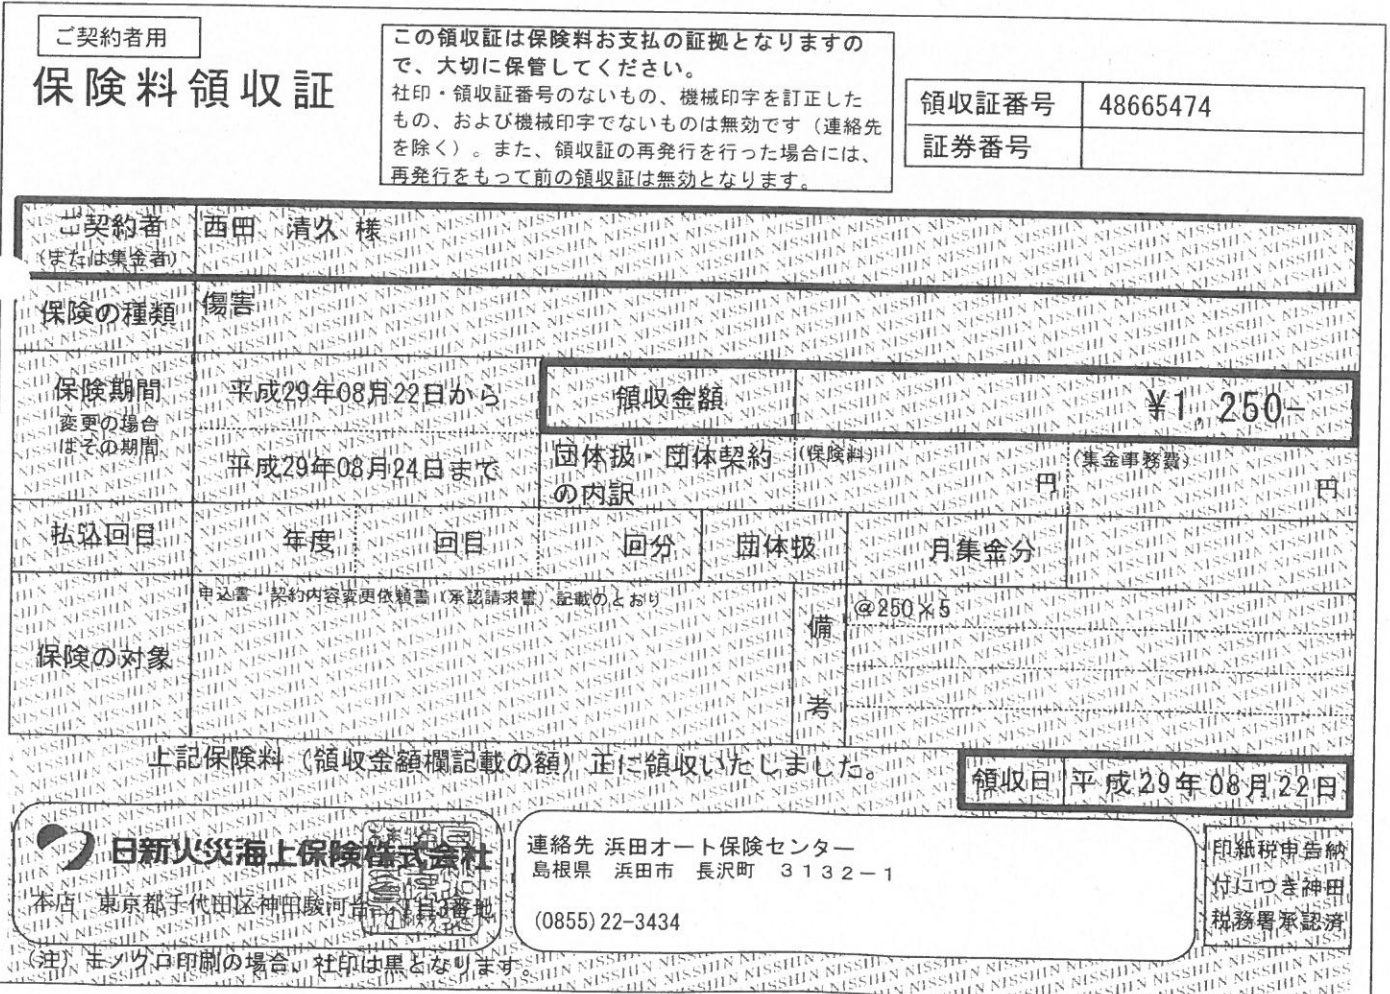 ご契約者用
保険料領収証
この領収証は保険料お支払の証拠となりますの
で、大切に保管してください。
社印・領収証番号のないもの、機械印字を訂正した
もの、および機械印字でないものは無効です（連絡先
を除く）。また、領収証の再発行を行った場合には、
再発行をもって前の領収証は無効となります。
領収証番号 48665474
証券番号
ご契約者 西田 清久 様
(または集金者)
保険の種類 傷害
保険期間 平成29年08月22日から
変更の場合
はその期間
平成29年08月24日まで
領収金額 ¥1,250-
団体扱・団体契約 (保険料) 円 (集金事務費) 円
の内訳
払込回目 年度 回目 回分 団体扱 月集金分
保険の対象 申込書・契約内容変更依頼書（承認請求書）記載のとおり
備考 @250×5
上記保険料（領収金額欄記載の額）正に領収いたしました。
領収日 平成29年08月22日
日新火災海上保険株式会社
本店 東京都千代田区神田駿河台二丁目3番地
連絡先 浜田オート保険センター
島根県 浜田市 長沢町 3132-1
(0855)22-3434
印紙税申告納
付につき神田
税務署承認済
(注) モノクロ印刷の場合、社印は黒となります。